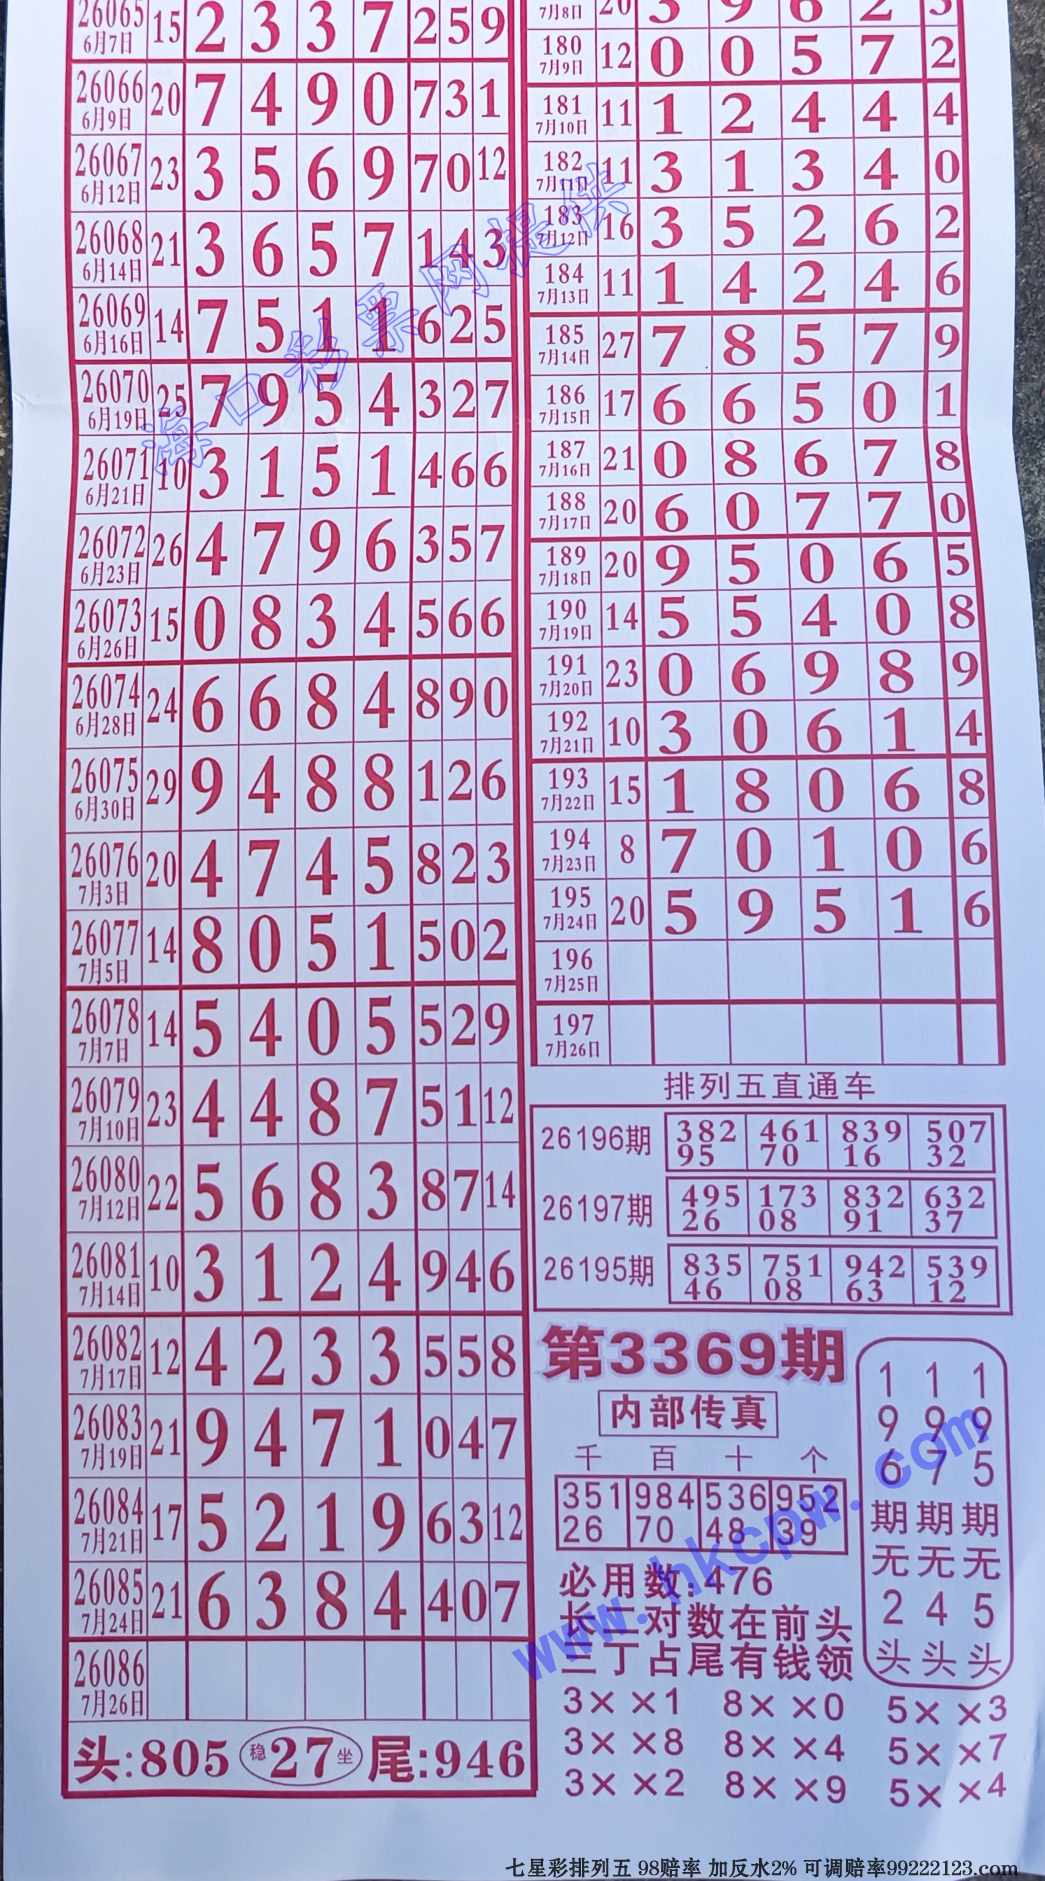 26065 6月7日 15 2 3 3 7 2 5 9
26066 6月9日 20 7 4 9 0 7 3 1
26067 6月12日 23 3 5 6 9 7 0 12
26068 6月14日 21 3 6 5 7 1 4 3
26069 6月16日 14 7 5 1 1 6 2 5
26070 6月19日 25 7 9 5 4 3 2 7
26071 6月21日 10 3 1 5 1 4 6 6
26072 6月23日 26 4 7 9 6 3 5 7
26073 6月26日 15 0 8 3 4 5 6 6
26074 6月28日 24 6 6 8 4 8 9 0
26075 6月30日 29 9 4 8 8 1 2 6
26076 7月3日 20 4 7 4 5 8 2 3
26077 7月5日 14 8 0 5 1 5 0 2
26078 7月7日 14 5 4 0 5 5 2 9
26079 7月10日 23 4 4 8 7 5 1 12
26080 7月12日 22 5 6 8 3 8 7 14
26081 7月14日 10 3 1 2 4 9 4 6
26082 7月17日 12 4 2 3 3 5 5 8
26083 7月19日 21 9 4 7 1 0 4 7
26084 7月21日 17 5 2 1 9 6 3 12
26085 7月24日 21 6 3 8 4 4 0 7
26086 7月26日
头:805 稳27坐 尾:946
7月8日 20 3 9 6 2 3
180 7月9日 12 0 0 5 7 2
181 7月10日 11 1 2 4 4 4
182 7月11日 11 3 1 3 4 0
183 7月12日 16 3 5 2 6 2
184 7月13日 11 1 4 2 4 6
185 7月14日 27 7 8 5 7 9
186 7月15日 17 6 6 5 0 1
187 7月16日 21 0 8 6 7 8
188 7月17日 20 6 0 7 7 0
189 7月18日 20 9 5 0 6 5
190 7月19日 14 5 5 4 0 8
191 7月20日 23 0 6 9 8 9
192 7月21日 10 3 0 6 1 4
193 7月22日 15 1 8 0 6 8
194 7月23日 8 7 0 1 0 6
195 7月24日 20 5 9 5 1 6
196 7月25日
197 7月26日
排列五直通车
26196期 38295 46170 83916 50732
26197期 49526 17308 83291 63237
26195期 83546 75108 94263 53912
第3369期
内部传真
千 百 十 个
351 984 536 952
26 70 48 39
必用数:476
长二对数在前头
三丁占尾有钱领
3××1 8××0 5××3
3××8 8××4 5××7
3××2 8××9 5××4
1 1 1
9 9 9
6 7 5
期 期 期
无 无 无
2 4 5
头 头 头
海口彩票网提供
www.hkcpw.com
七星彩排列五 98赔率 加反水2% 可调赔率99222123.com